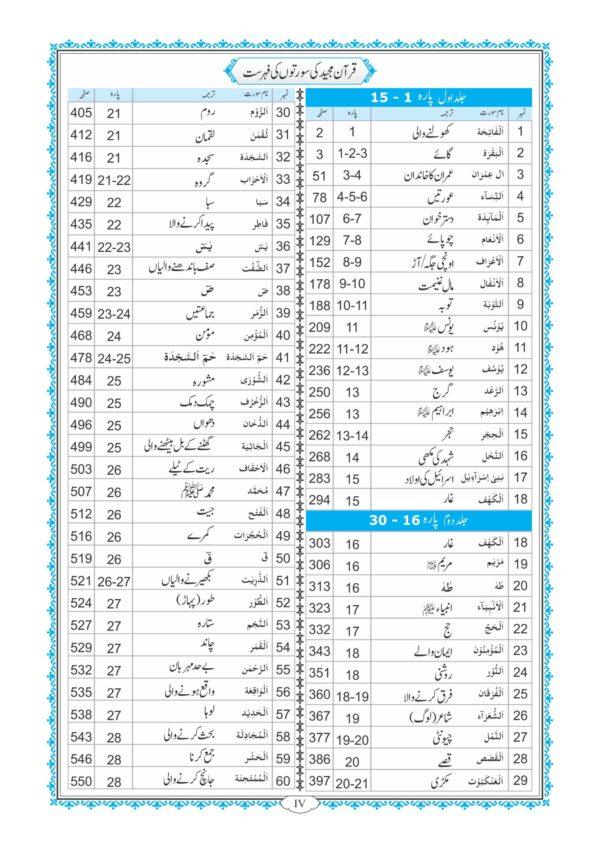 قرآن مجید کی سورتوں کی فہرست
جلد اول پارہ 1 - 15
نمبر نام سورت ترجمہ پارہ صفحہ
1 اَلْفَاتِحَة کھولنے والی 1 2
2 اَلْبَقَرَة گائے 1-2-3 3
3 اٰلِ عِمْرَان عمران کا خاندان 3-4 51
4 اَلنِّسَآء عورتیں 4-5-6 78
5 اَلْمَآئِدَة دسترخوان 6-7 107
6 اَلْاَنْعَام چوپائے 7-8 129
7 اَلْاَعْرَاف اونچی جگہ/آڑ 8-9 152
8 اَلْاَنْفَال مال غنیمت 9-10 178
9 اَلتَّوْبَة توبہ 10-11 188
10 يُوْنُس یونس ؑ 11 209
11 هُوْد ہود ؑ 11-12 222
12 يُوْسُف یوسف ؑ 12-13 236
13 اَلرَّعْد گرج 13 250
14 اِبْرٰهِيْم ابراہیم ؑ 13 256
15 اَلْحِجْر حجر 13-14 262
16 اَلنَّحْل شہد کی مکھی 14 268
17 بَنِيْٓ اِسْرَآءِيْل اسرائیل کی اولاد 15 283
18 اَلْكَهْف غار 15 294
جلد دوم پارہ 16 - 30
18 اَلْكَهْف غار 16 303
19 مَرْيَم مریم ؑ 16 306
20 طٰهٰ طٰهٰ 16 313
21 اَلْاَنْۢبِيَآء انبیاء ؑ 17 323
22 اَلْحَجّ حج 17 332
23 اَلْمُؤْمِنُوْن ایمان والے 18 343
24 اَلنُّوْر روشنی 18 351
25 اَلْفُرْقَان فرق کرنے والا 18-19 360
26 اَلشُّعَرَآء شاعر (لوگ) 19 367
27 اَلنَّمْل چیونٹی 19-20 377
28 اَلْقَصَص قصے 20 386
29 اَلْعَنْكَبُوْت مکڑی 20-21 397
نمبر نام سورت ترجمہ پارہ صفحہ
30 اَلرُّوْم روم 21 405
31 لُقْمٰن لقمان 21 412
32 اَلسَّجْدَة سجدہ 21 416
33 اَلْاَحْزَاب گروہ 21-22 419
34 سَبَا سبا 22 429
35 فَاطِر پیدا کرنے والا 22 435
36 يٰسٓ یٰسٓ 22-23 441
37 اَلصّٰٓفّٰت صف باندھنے والیاں 23 446
38 صٓ صٓ 23 453
39 اَلزُّمَر جماعتیں 23-24 459
40 اَلْمُؤْمِن مؤمن 24 468
41 حٰمٓ اَلسَّجْدَة حٰمٓ اَلسَّجْدَة 24-25 478
42 اَلشُّوْرٰى مشورہ 25 484
43 اَلزُّخْرُف چمک دمک 25 490
44 اَلدُّخَان دھواں 25 496
45 اَلْجَاثِيَة گھٹنے کے بل بیٹھنے والی 25 499
46 اَلْاَحْقَاف ریت کے ٹیلے 26 503
47 مُحَمَّد محمد ﷺ 26 507
48 اَلْفَتْح جیت 26 512
49 اَلْحُجُرَات کمرے 26 516
50 قٓ قٓ 26 519
51 اَلذّٰرِيٰت بکھیرنے والیاں 26-27 521
52 اَلطُّوْر طور (پہاڑ) 27 524
53 اَلنَّجْم ستارہ 27 527
54 اَلْقَمَر چاند 27 529
55 اَلرَّحْمٰن بے حد مہربان 27 532
56 اَلْوَاقِعَة واقع ہونے والی 27 535
57 اَلْحَدِيْد لوہا 27 538
58 اَلْمُجَادِلَة بحث کرنے والی 28 543
59 اَلْحَشْر جمع کرنا 28 546
60 اَلْمُمْتَحِنَة جانچ کرنے والی 28 550
IV